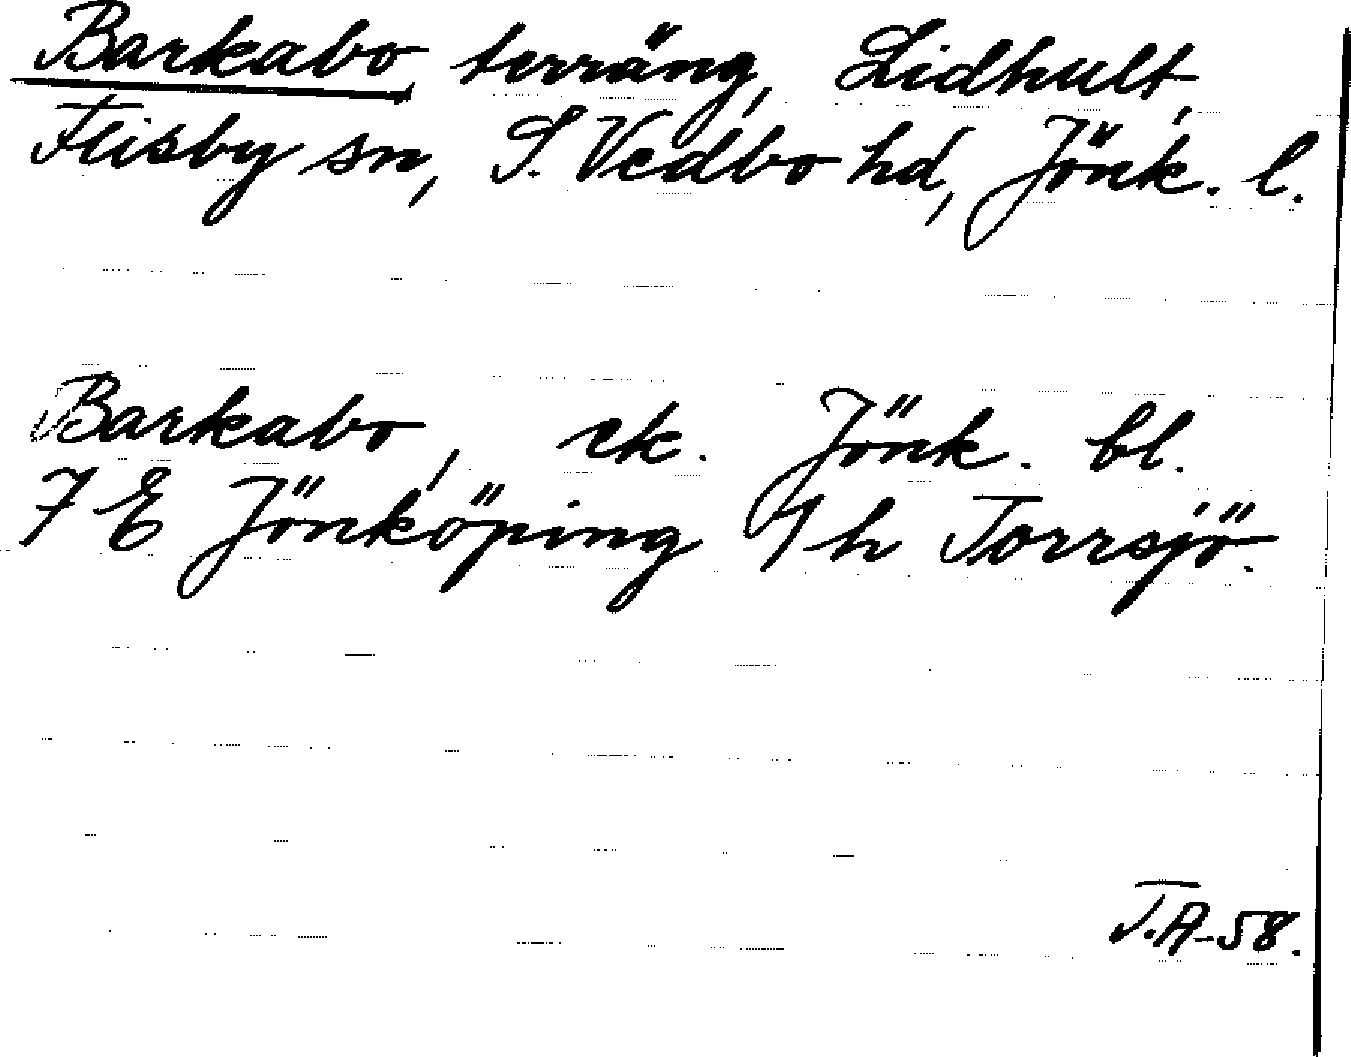 Barkabo, terräng, Lidhult,
Flisby sn, S. Vedbo hd, Jönk. l.
Barkabo, ek. Jönk. bl.
7 E Jönköping 1 h Torrsjö.
T.A-58.